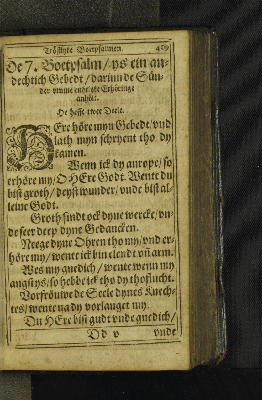 Tröstlyke Boetpsalmen. 429
De 7. Boetpsalm / ys ein an-
dechtich Gebedt / darinne de Sün-
der umme endtlyke Erhöringe
anholt.
De hefft twee Deele.
HEre höre myn Gebedt / vnd
lath myn schryent tho dy
kamen.
Wenn ick dy anrope / so
erhöre my / O HEre Godt. Wente du
bist groth / deyst wunder / vnde bist al-
leine Godt.
Groth sindt ock dyne wercke / vn-
de seer deep dyne Gedancken.
Neege dyne Ohren tho my / vnd er-
höre my / wente ick bin elendt vñ arm.
Wes my gnedich / wente wenn my
angst ys / so hebbe ick tho dy thoflucht.
Vorfröuwe de Seele dynes Knech-
tes / wente na dy vorlanget my.
Du HEre bist gudt vnde gnedich /
Dd v vnde